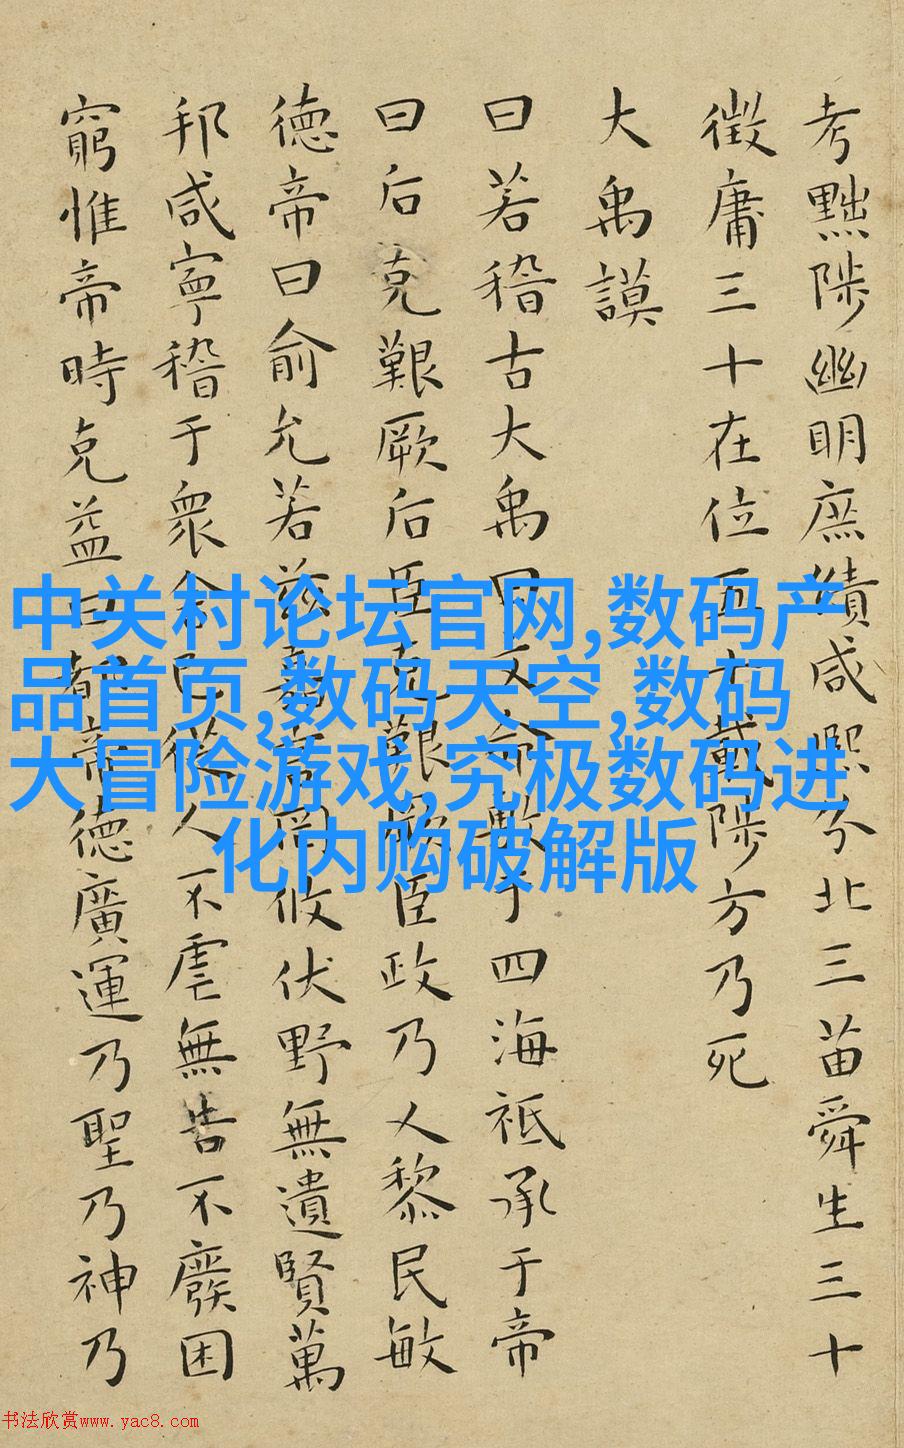 考黜陟幽明庶績咸熙分北三苗舜生三十
徵庸三十在位五十載陟方乃死
大禹謨
曰若稽古大禹曰文命敷于四海祗承于帝
曰后克艱厥后臣克艱厥臣政乃乂黎民敏
德帝曰俞允若茲嘉言罔攸伏野無遺賢萬
邦咸寧稽于衆舍己從人不虐無告不廢困
窮惟帝時克益曰都帝德廣運乃聖乃神乃
中关村论坛官网,数码产
品首页,数码天空,数码
大冒险游戏,究极数码进
化内购破解版
书法欣赏www.yac8.com